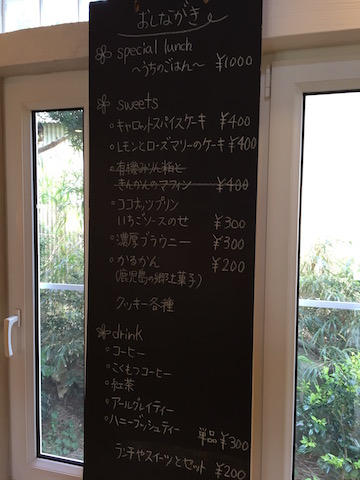 おしながき
special lunch
～うちのごはん～ ¥1000
sweets
◦キャロットスパイスケーキ ¥400
◦レモンとローズマリーのケーキ ¥400
◦有機みりん粕と
きんかんのマフィン ¥400
◦ココナッツプリン
いちごソースのせ ¥300
◦濃厚ブラウニー ¥300
◦かるかん ¥200
(鹿児島の郷土菓子)
クッキー各種
drink
◦コーヒー
◦こくもつコーヒー
◦紅茶
◦アールグレイティー
◦ハニーブッシュティー
単品 ¥300
ランチやスイーツとセット ¥200